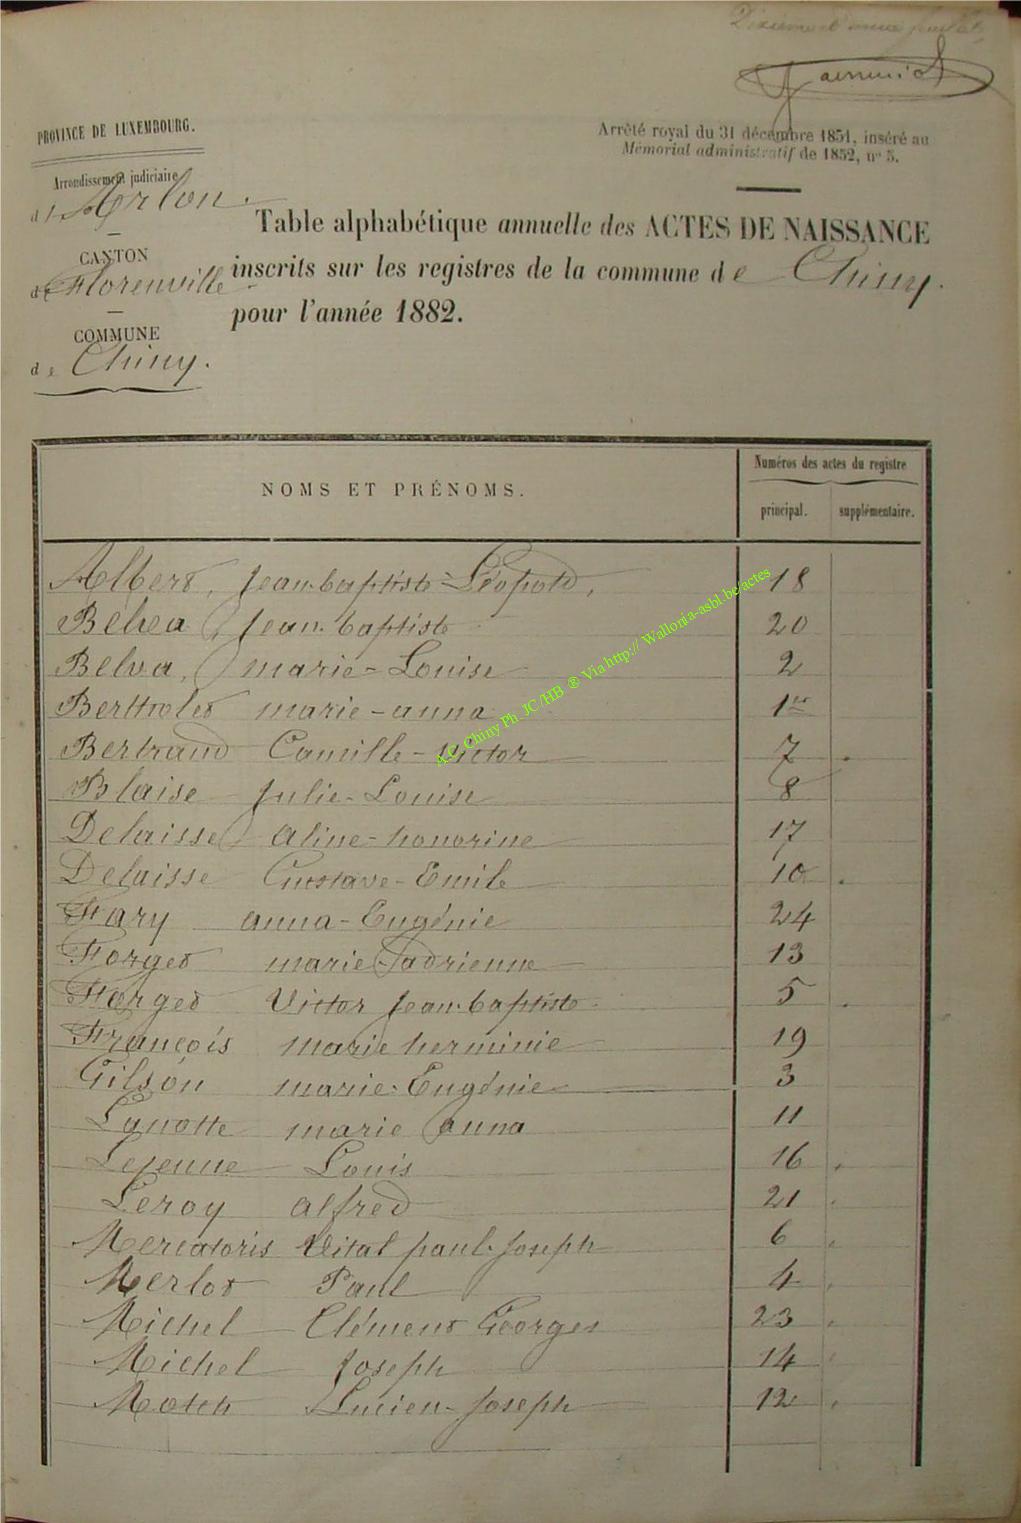 PROVINCE DE LUXEMBOURG.
Arrondissement judiciaire
d'Arlon.
CANTON
de Florenville
COMMUNE
de Chiny.
Arrêté royal du 31 décembre 1851, inséré au
Mémorial administratif de 1852, n° 5.
Table alphabétique annuelle des ACTES DE NAISSANCE
inscrits sur les registres de la commune de Chiny.
pour l'année 1882.
NOMS ET PRÉNOMS.
Numéros des actes du registre
principal. supplémentaire.
Albert, Jean-baptiste-Léopold, 18
Belva, Jean-baptiste 20
Belva, marie-Louise 2
Bertholet marie-anna 1er
Bertrand Camille-Victor 7
Blaise Julie-Louise 8
Delaisse aline-honorine 17
Delaisse Gustave-Emile 10
Fary anna-Eugénie 24
Forget marie adrienne 13
Forget Victor Jean-baptiste 5
François marie herminie 19
Gilson marie-Eugénie 3
Lanotte marie anna 11
Lejeune Louis 16
Leroy alfred 21
Mercatoris Vital paul-Joseph 6
Merlot Paul 4
Michel Clément Georges 23
Michel Joseph 14
Motch Lucien-Joseph 12
A.C. Chiny Ph. JC/HB ® Via http:// Wallonia-asbl.be/actes